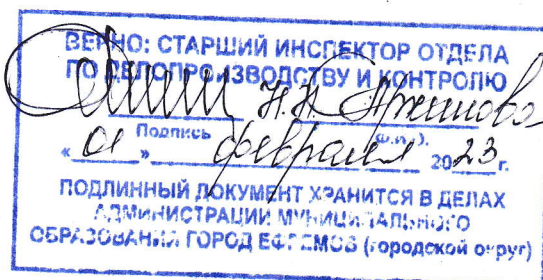 ВЕРНО: СТАРШИЙ ИНСПЕКТОР ОТДЕЛА
ПО ДЕЛОПРОИЗВОДСТВУ И КОНТРОЛЮ
Н.Н.
Подпись (Ф.И.О.)
« 01 » февраля 2023 г.
ПОДЛИННЫЙ ДОКУМЕНТ ХРАНИТСЯ В ДЕЛАХ
АДМИНИСТРАЦИИ МУНИЦИПАЛЬНОГО
ОБРАЗОВАНИЯ ГОРОД ЕФРЕМОВ (городской округ)